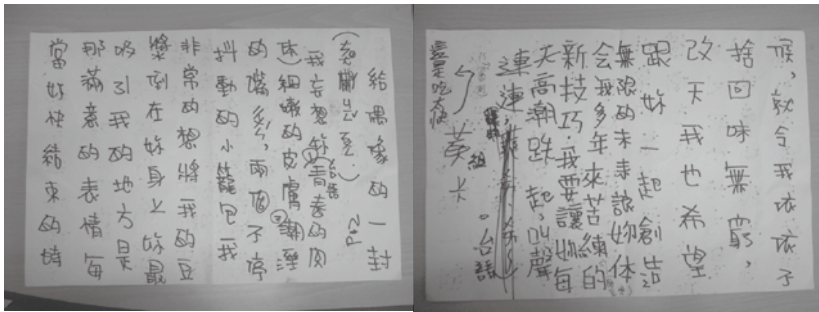 給偶像的一封
P.2
我妄想妳青春的肉
台語
体)細嫩的皮膚潮溼
的嘴形,兩個不停
抖動的小籠包我
非常的想將我的豆
漿倒在妳身上妳最
吸引我的地方是
那滿意的表情每
當妳快結束的時
候,就令我依依不
捨回味無窮,
改天我也希望
跟妳一起創造
無限的未來讓妳体
会我多年來苦練的
新技巧,我要讓妳每
天高潮跌起,叫聲
連連,
。台語
組
這是吃太快